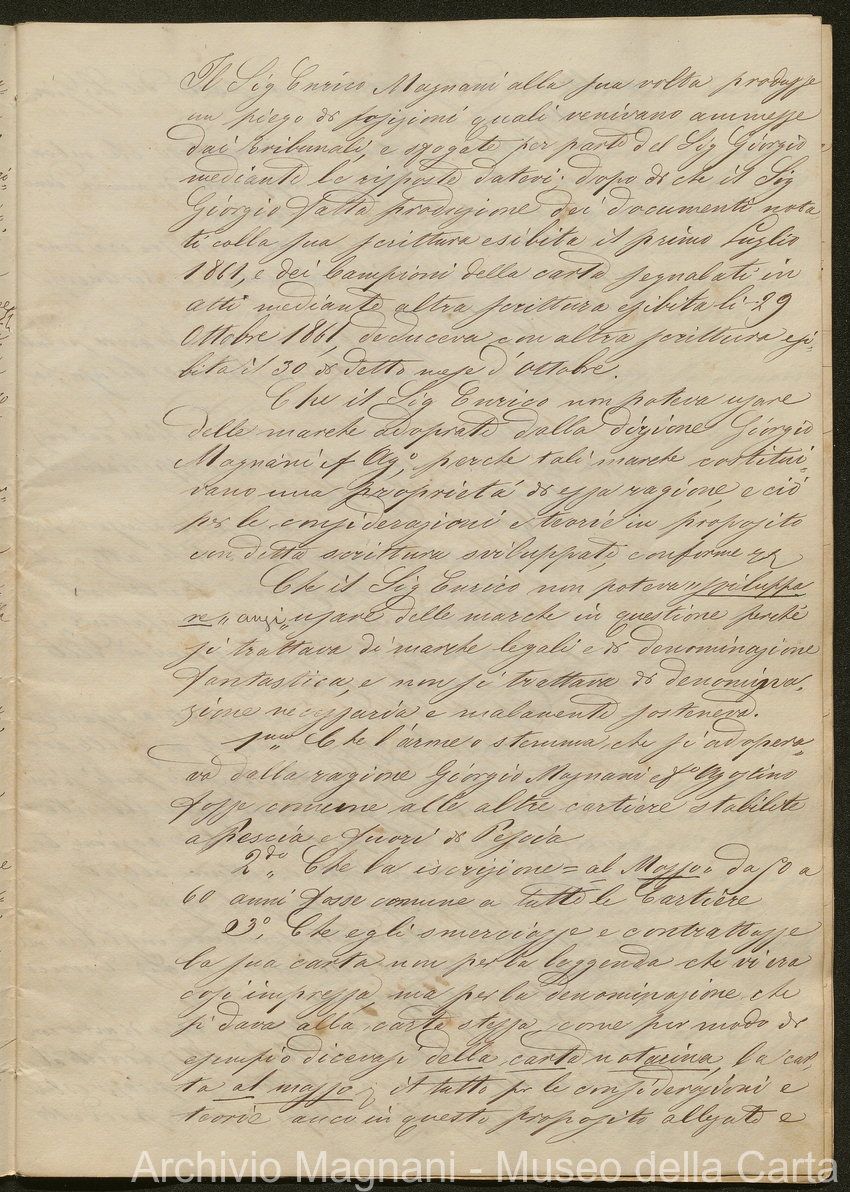 Il Sig Enrico Magnani alla sua volta produsse
un piego di posizioni quali venivano ammesse
dai Tribunali, e sfogate per parte del Sig Giorgio
mediante le risposte datevi. dopo di che il Sig
Giorgio fatta produzione dei documenti nota
ti colla sua scrittura esibita il primo Luglio
1861, e dei Campioni della carta segnalati in
atti mediante altra scrittura esibita li 29
Ottobre 1861, deduceva con altra scrittura esi-
bita il 30 di detto mese d'Ottobre.
Che il Sig Enrico non poteva usare
delle marche adoprate dalla dizione Giorgio
Magnani f Ago, perche tali marche costitui-
vano una proprietá di essa ragione, e ció
per le considerazioni e teorie in proposito
con detta scrittura sviluppate, conforme
Che il Sig Enrico non poteva sviluppa
re „ anzi „ usare delle marche in questione perché
si trattava di marche legali e di denominazione
fantastica, e non si trattava di denomina-
zione necessaria e malamente sosteneva.
1mo Che l'arme o stemma, che si adopera-
va dalla ragione Giorgio Magnani e fo Agostino
fosse comune alle altre cartiere stabilite
a Pescia e fuori di Pescia
2do „ Che la iscrizione = al Masso „ da 50 a
60 anni fosse comune a tutte le Cartiere
3o, Che egli smerciasse e contrattasse
la sua carta non per la leggenda che vi era
cosi impressa, ma per la denominazione che
si dava alla carta stessa, come per modo di
esempio dicevasi della carta notarina, la car-
ta al masso; il tutto per le considerazioni e
teorie anco in questo proposito allegate e
Archivio Magnani - Museo della Carta